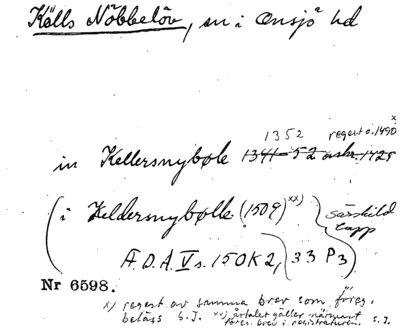 Källs Nöbbelöv, sn i Onsjö hd
1352 regest o. 1490 x
in Kellersnybole 1341-52 avskr. 1425
(i Keldersnybølle (1509) xx) särskild
Æ.D.A. V s. 150 K2, 33 P3) lapp
Nr 6598.
x) regest av samma brev som föreg.
belägg S.J. xx) årtalet gäller närmast
föreg. brev i registraturen. S.J.